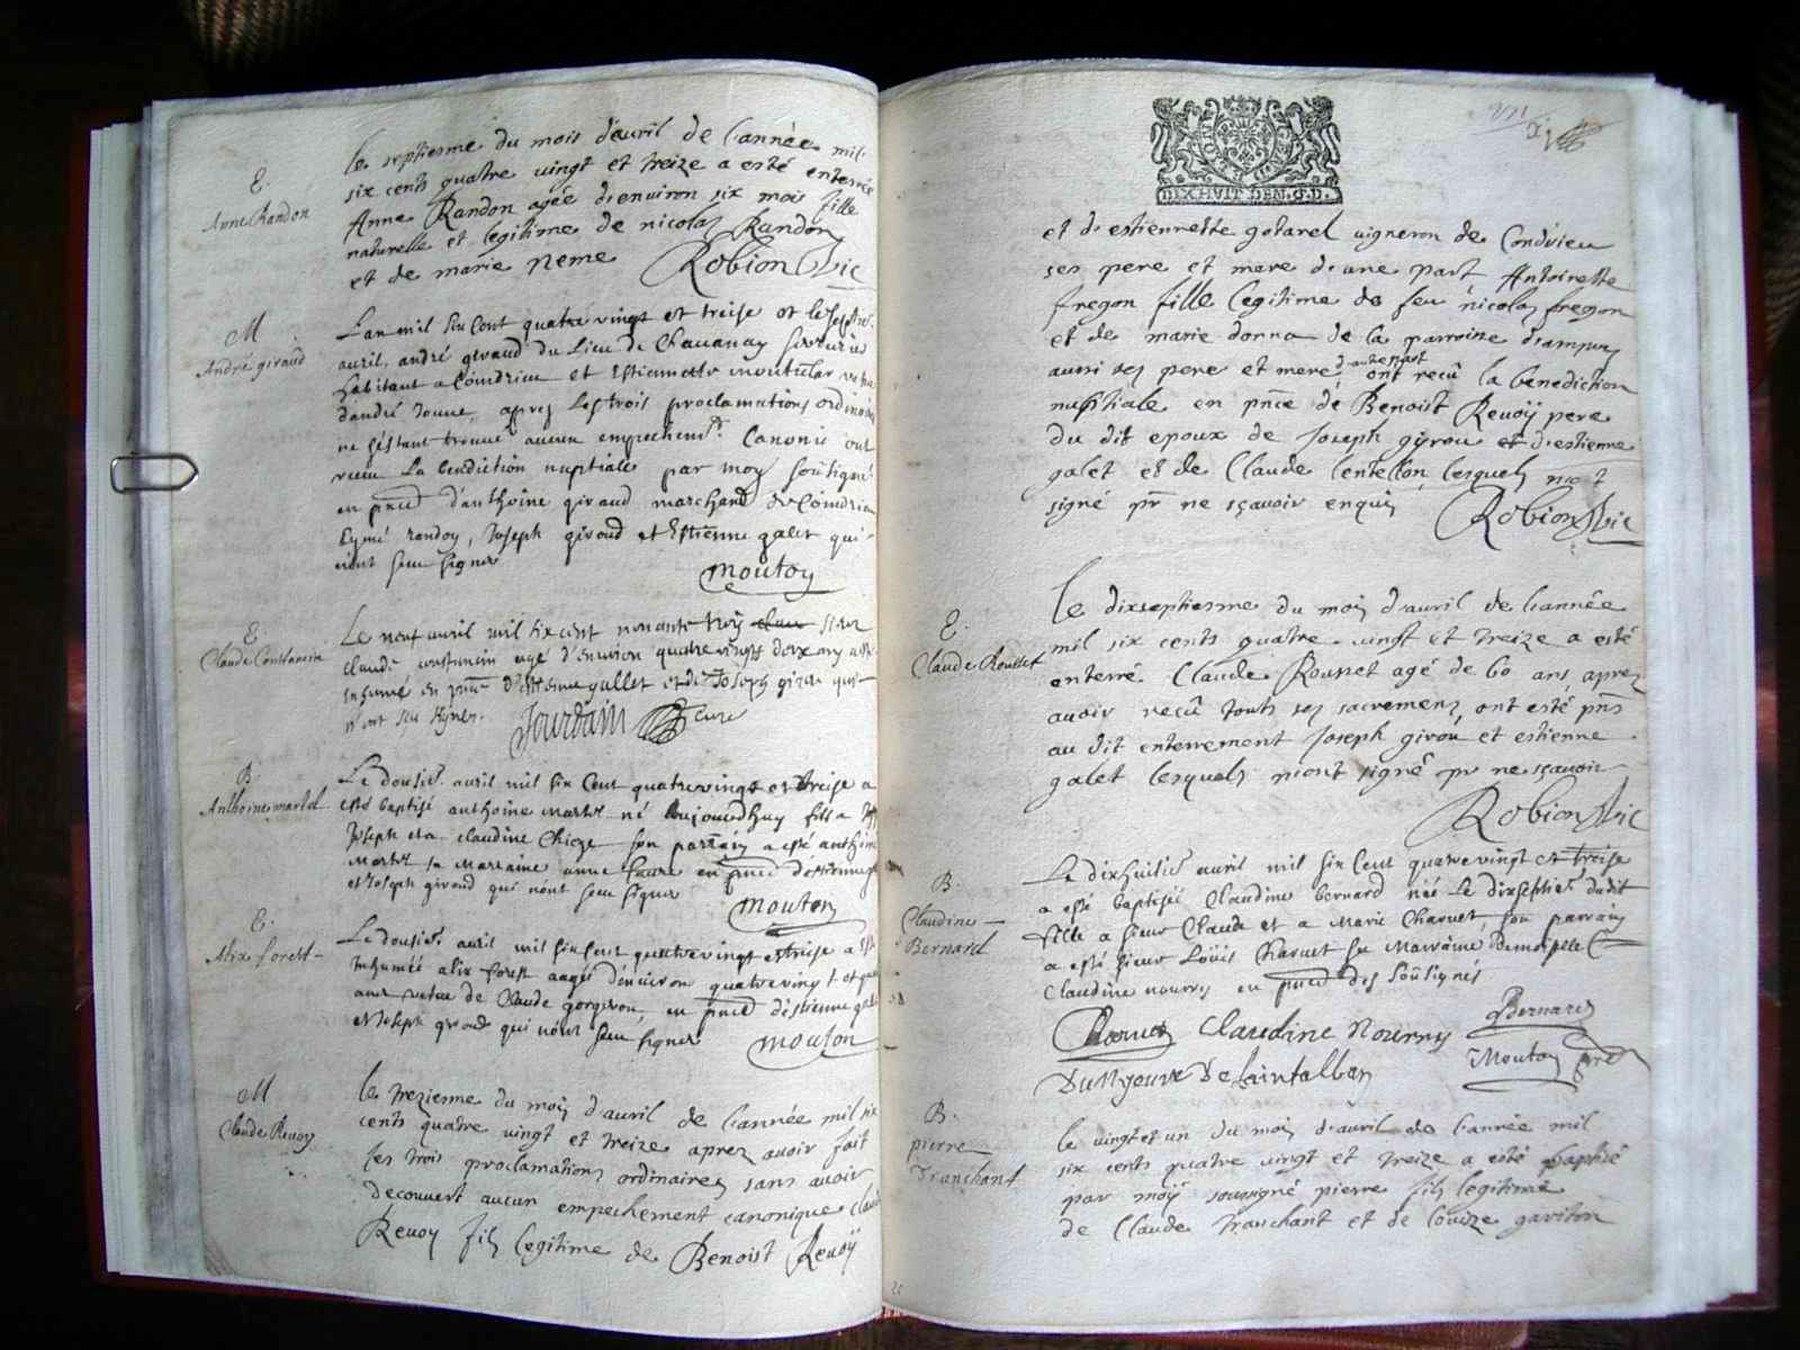 E.
Anne Randon
le septiesme du mois d'auril de l'année mil
six cents quatre vingt et treize a esté enterrée
Anne Randon agée d'enuiron six mois fille
naturelle et legitime de nicolas Randon
et de marie neme Robion Vic
M
André giraud
L'an mil six cent quatre vingt et treise et le sept
auril, andré giraud du Lieu de Chauanay
habitant a Coindrieu et Estiennette
d'andré apres les trois proclamations ordinaires
ne s'estant trouué aucun empechem^t. Canonic ont
receu La benediction nuptiale par moy soûsigné
en pñce d'anthoine giraud marchand de Coindrieu
Eymé randon, Joseph giraud et Estienne galet qui
n'ont sceu signer
mouton
E
Claude Constancin
Le neuf auril mil six cent nonante troy sieur
claude constancin agé d'enuiron quatre vingts douze any a esté
inhumé en pñce d'estienne gallet et de Joseph girou qui
n'ont sçu signer. Jourdain curé
B.
Anthoine martel
Le dousie^e. auril mil six Cent quatre vingt et treise a
esté baptisé anthoine martel né aujourdhuy fils a
Joseph et a claudine Chieze son parrain a esté anthoine
martel sa marraine anne faure en pñce d'estienne
et Joseph giraud qui n'ont sceu signer
mouton
E.
Alix forest
Le dousie^e. auril mil six Cent quatre vingt et treise a esté
Inhumée alix forest aagée d'enuiron quatre vingt et
ans vefue de Claude gorgeron, en pñce d'estienne galet
et Joseph giraud qui n'ont sceu signer mouton
M
Claude Reuoy
le trezieme du mois d'auril de l'année mil six
cents quatre vingt et treize apres auoir fait
les trois proclamations ordinaires sans auoir
decouuert aucun empechement canonique Claude
Reuoy fils legitime de Benoist Reuoÿ
DIX HVIT DEN. G.D.
et d'estiennette gotarel uigneron de Condrieu
ses pere et mere d'une part Antoinette
fregon fille legitime de feu nicolas fregon
et de marie donna de la parroisse d'ampuy
aussi ses pere et mere d'autre part ont recû la benediction
nuptiale en pñce de Benoist Reuoÿ pere
du dit epoux de Joseph gyrou et d'estienne
galet et de Claude lentellon lesquels n'ot
signé pr̃ ne sçauoir enquis Robion Vic
E.
Claude Rousset
le dixseptiesme du mois d'auril de l'année
mil six cents quatre-vingt et treize a esté
enterré Claude Rousset agé de 60 ans apres
auoir recû touts ses sacremens, ont esté pñs
au dit enterrement Joseph girou et estienne
galet lesquels n'ont signé pr ne sçauoir
Robion Vic
B.
Claudine
Bernard
Le dixhuitie^e auril mil six Cent quatre vingt et treise
a esté baptisée Claudine bernard née Le dixseptie^e dudit
fille a sieur Claude et a Marie Charuet, son parrain
a esté sieur Loüis Charuet sa Marraine Demoiselle
Claudine nourry en pñce des soûsignés
Charuet Claudine Nourry Bernard
de saintalban Mouton
B.
pierre
Tranchant
le vingt et un du mois d'auril de l'année mil
six cents quatre vingt et treize a esté baptisé
par moÿ soussigné pierre fils legitime
de Claude tranchant et de Louize gariton